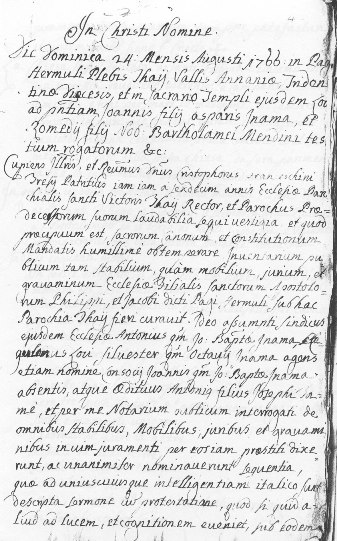 In Christi Nomine.
Hic Dominica 24 Mensis Augusti 1766 in Pago
Hermuli Plebis Thaij Vallis Ananiæ Triden
tinæ Diœcesis, et in Sacrario Templi ejusdem Loci
ad pntiam Joannis filij Gasparis Inama, et
Romedij filij Nob. Bartholamei Mendini tes
tium rogatorum &c:
Cupiens Illris, et Rmus Dnus Cristophorus Franceschini
iam iam annis Ecclesiæ Paro
chialis Sancti Victoris Thaij Rector, et Parochus Præ
decessorum suorum laudabilia sequi vestigia et quod
præcipuum est, Sacrorum Canonum, et Constitutionum
Mandatis humillimè obtemperare Inventarium pu
blicum tam stabilium, quàm mobilium, jurium, et
gravaminum Ecclesiæ Filialis Sanctorum Apostolo
rum Philippi, et Jacobi dicti Pagi Hermuli sub hac
Parochia Thaij fieri curavit. Ideo assumti, sindicus
ejusdem Ecclesiæ Antonius qm Jo: Bapta Inama et
Silvester qm Octavij Inama agens
etiam nomine Joannis qm Jo: Baptæ Inama
absentis, atque Ædituus Antonius filius Josephi Ina-
mæ, et per me Notarium publicum interrogati de
omnibus stabilibus, Mobilibus, juribus et gravami
nibus in vim juramenti per eos iam prestiti dixe
runt, ac unanimiter nominaverunt sequentia,
quæ ad uniuscuiusque intelligentiam italico sunt
descripta sermone cum protestatione, quod si quid a-
liud ad lucem, et cognitionem eveniet, sub eodem